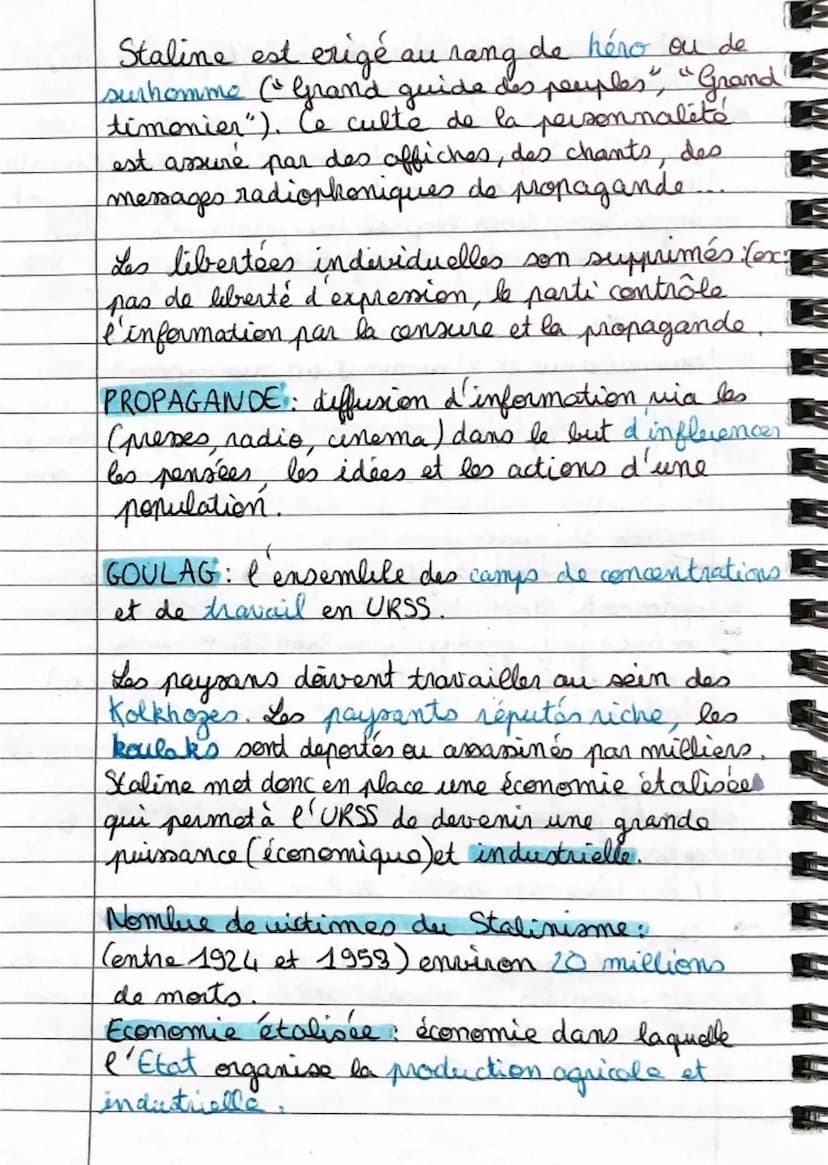 Staline est erigé au rang de héro ou de
surhomme ("Grand guide des peuples", "Grand
timonier"). Ce culte de la personnalité
est assuré par des affiches, des chants, des
messages radiophoniques de propagande...
Les libertées individuelles son supprimés : (ex:
pas de liberté d'expression, le parti contrôle
l'information par la censure et la propagande.
PROPAGANDE : diffusion d'information via les
(preses, radio, cinema) dans le but d'influencer
les pensées, les idées et les actions d'une
population.
GOULAG : l'ensemble des camps de concentrations
et de travail en URSS.
Les paysans doivent travailler au sein des
Kolkhozes. Les paysants réputés riche, les
koulaks sont deportés ou assassinés par milliers.
Staline met donc en place une économie étatisée
qui permet à l'URSS de devenir une grande
puissance (économique) et industrielle.
Nombre de victimes du Stalinisme :
(entre 1924 et 1953) environ 20 millions
de morts.
Economie étatisée : économie dans laquelle
l'Etat organise la production agricole et
industrielle.